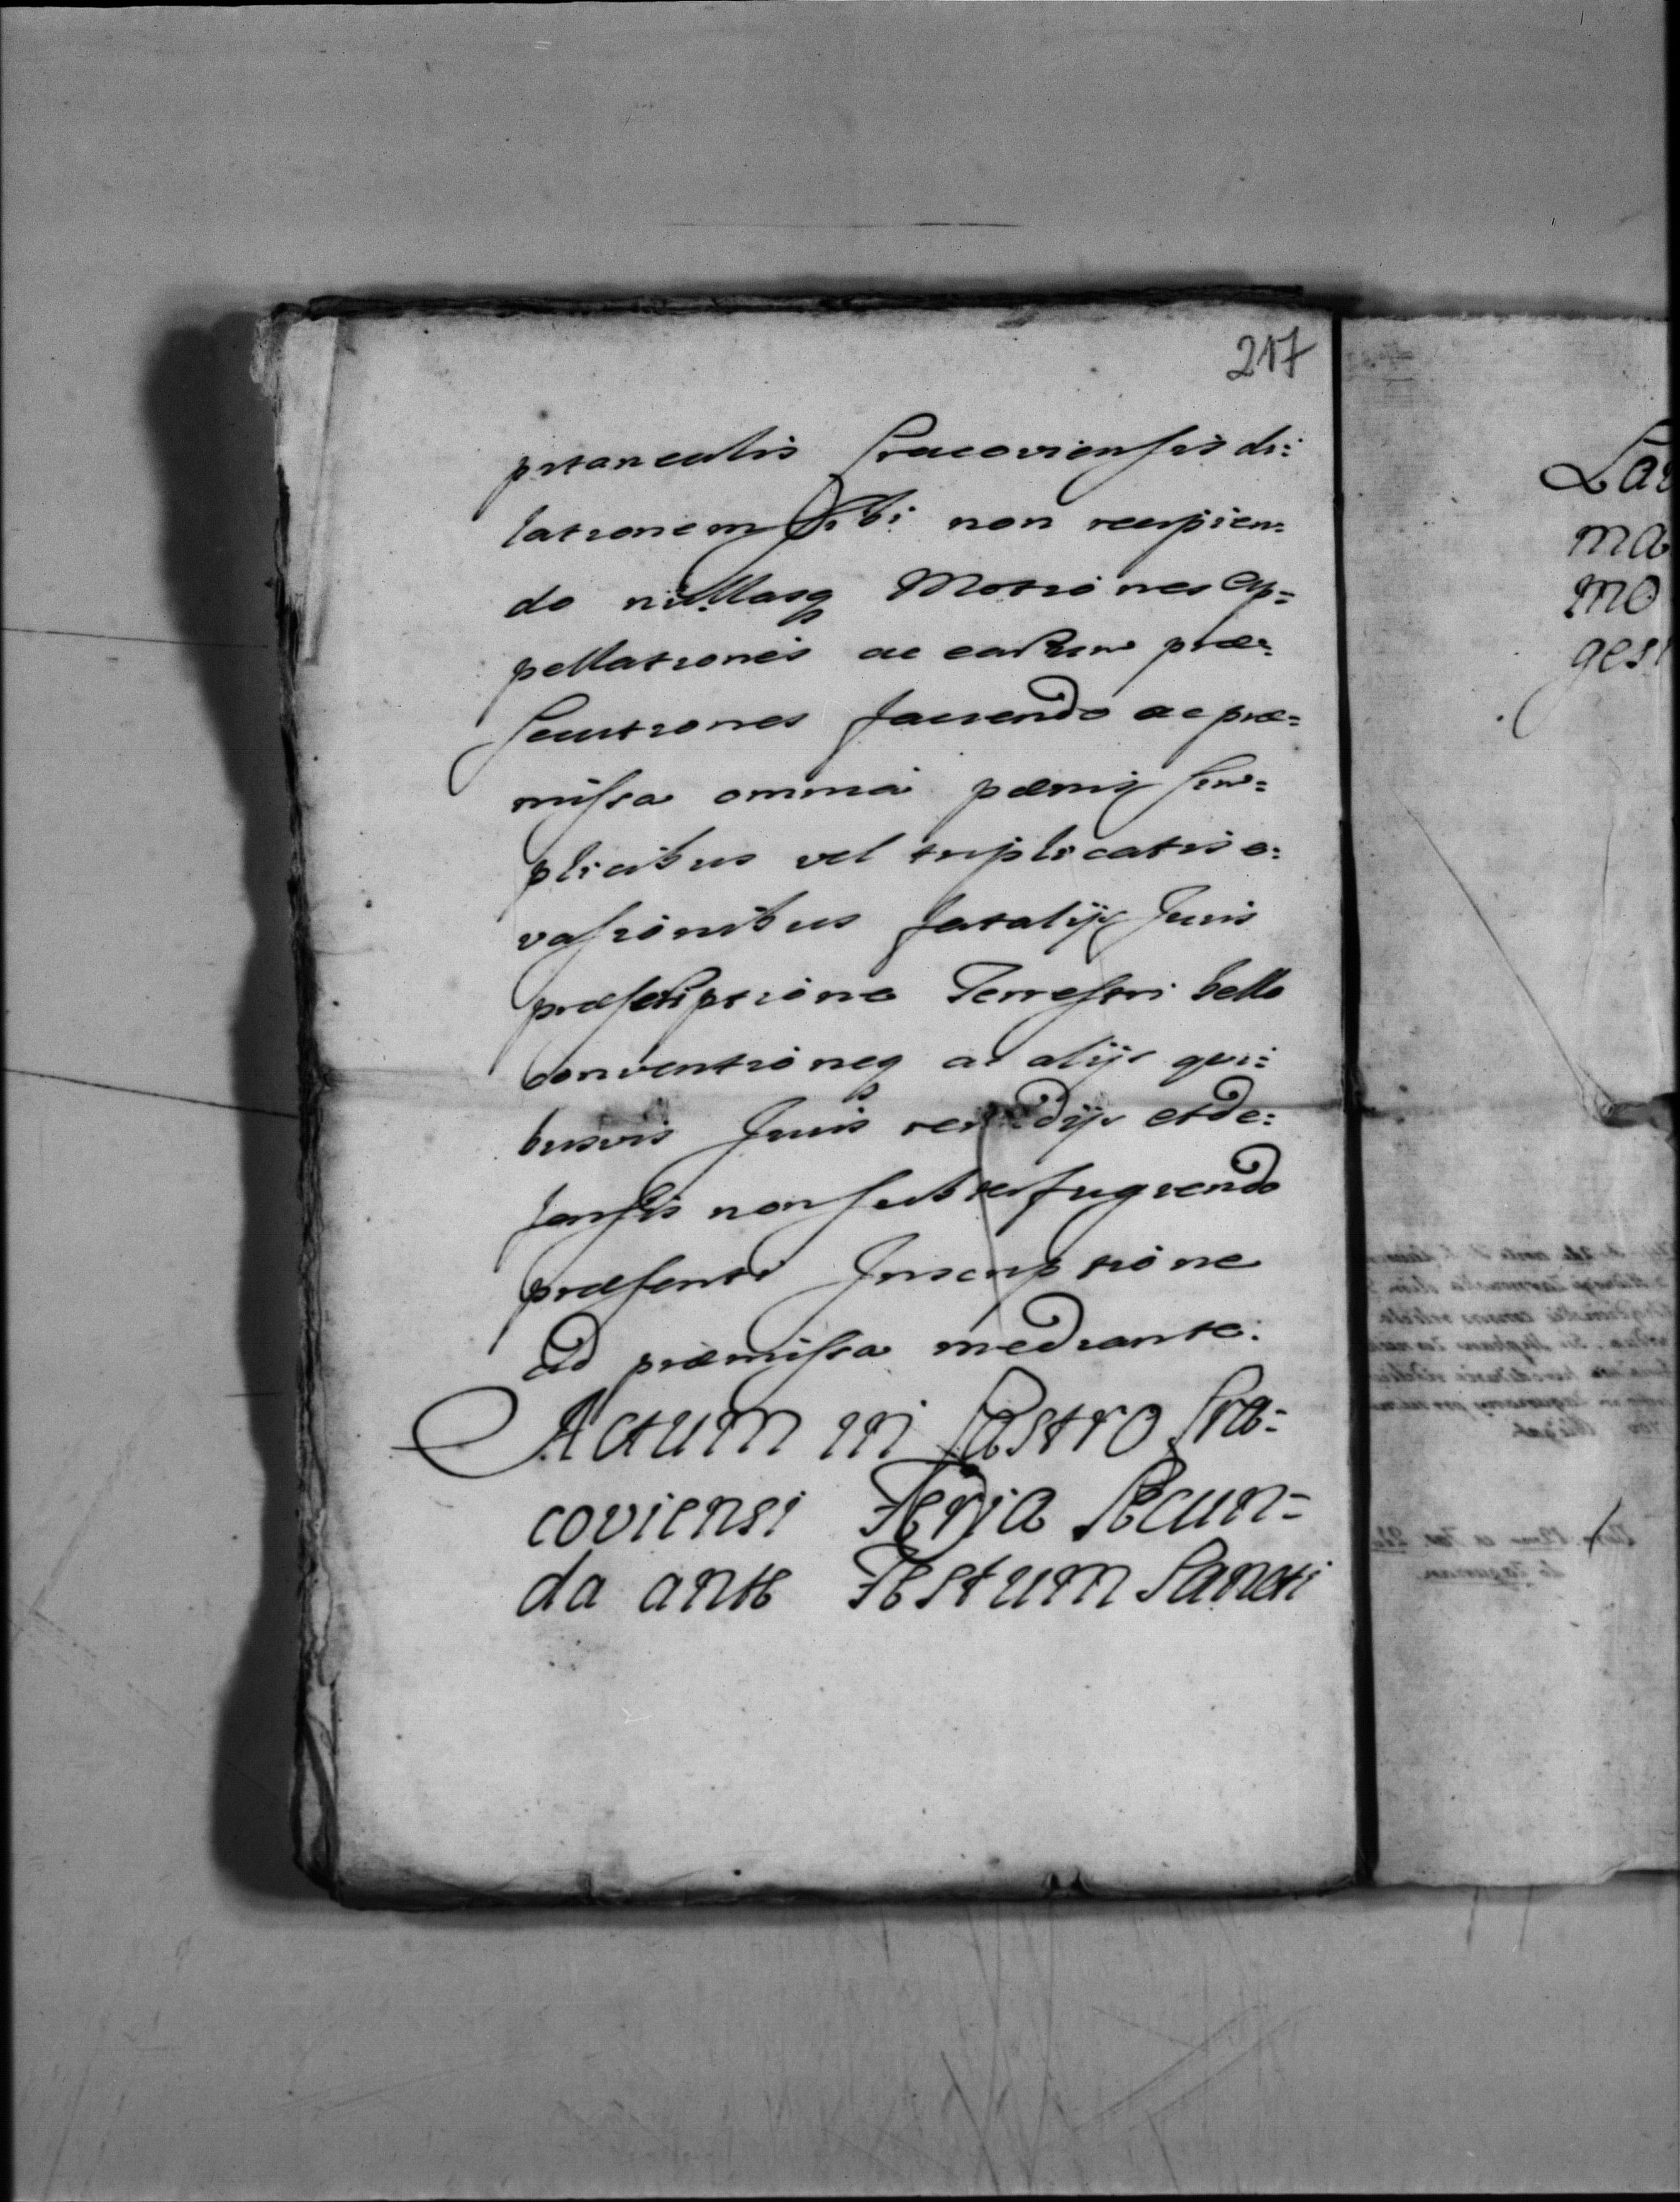 217
pitanealis Cracoviensis di:
lationem Sibi non recipien:
do nullasq Motiones Ap:
pellationes ac earum prae:
secutiones faciendo ac prae:
missa omnia paenis sim:
plicibus vel triplicatis e:
vasionibus fatalijs Juris
praescriptione Terrestri bello
conventioneq ac alijs qui:
busvis Juris remedijs et de:
fensis non subterfugiendo
praesenti Inscriptione
ad praemissa mediante.
Actum in Castro Cra=
coviensi Feria Secun=
da ante Festum Sancti
ma
mo